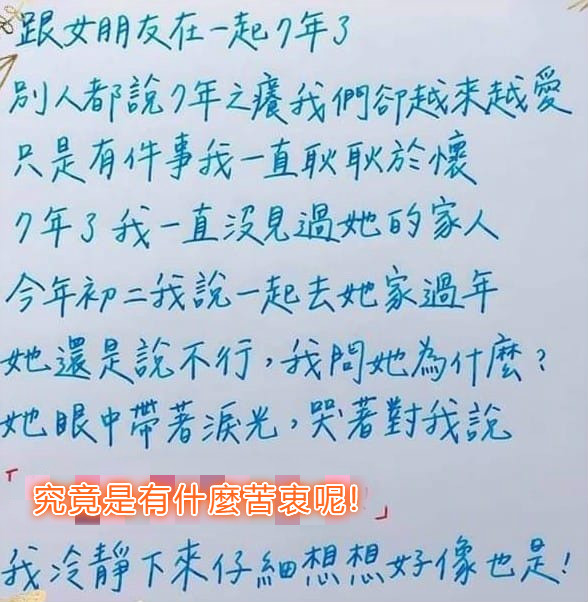 跟女朋友在一起7年了
別人都說7年之癢我們卻越來越愛
只是有件事我一直耿耿於懷
7年了我一直沒見過她的家人
今年初二我說一起去她家過年
她還是說不行，我問她為什麼？
她眼中帶著淚光，哭著對我說
「究竟是有什麼苦衷呢!」
我冷靜下來仔細想想好像也是!